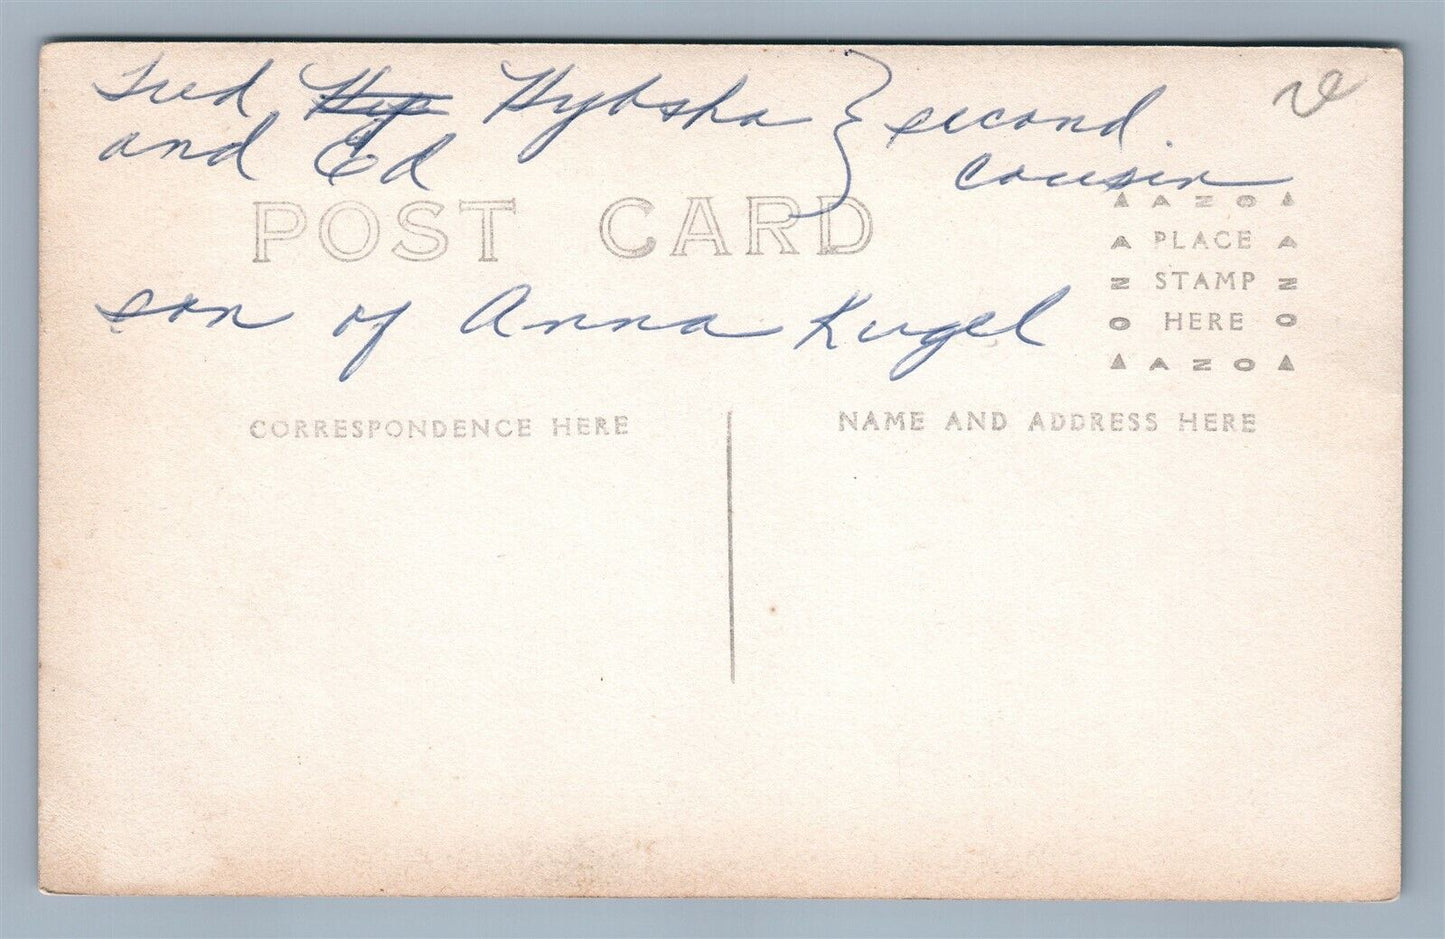 Fred Hybsha } second
and Ed cousin
POST CARD
AZO
PLACE
STAMP
HERE
AZO
son of Anna Kugel
CORRESPONDENCE HERE
NAME AND ADDRESS HERE